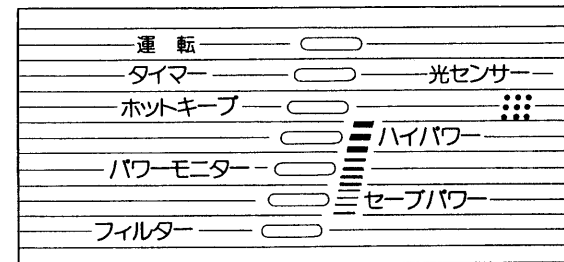 運 転
タイマー 光センサー
ホットキープ
ハイパワー
パワーモニター
セーブパワー
フィルター